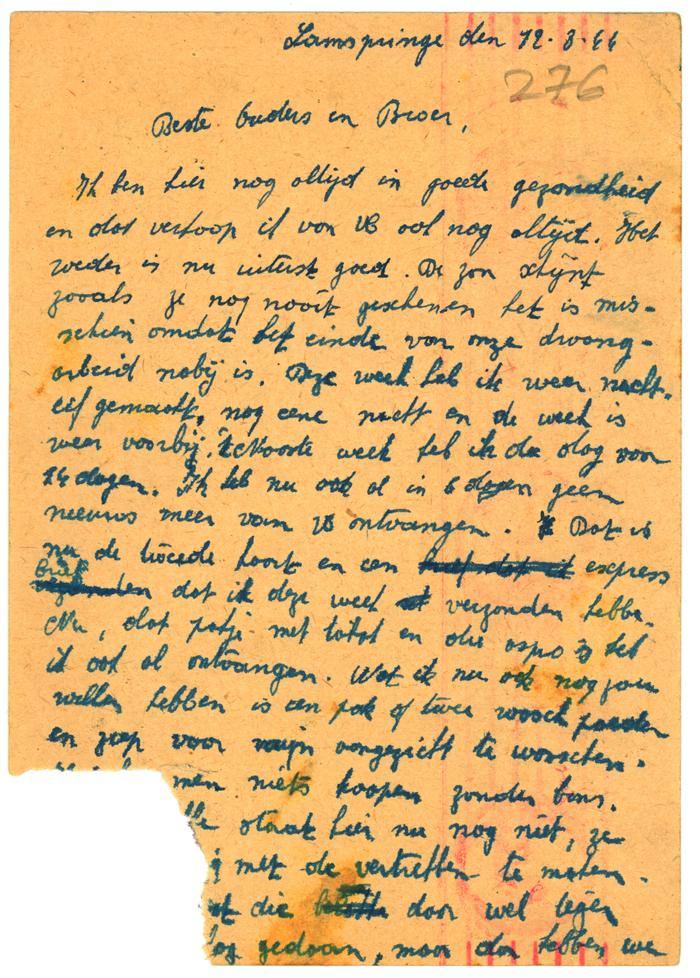 Lamspringe den 12.8.44
276
Beste Ouders en Broer,
Ik ben hier nog altijd in goede gezondheid
en dat verhoop ik van UE ook nog altijd. Het
weder is nu uiterst goed. De zon schijnt
zooals ze nog nooit geschenen het is mis-
schien omdat het einde van onze dwang-
arbeid nabij is. Deze week heb ik weer nacht-
gemaakt, nog eene nacht en de week is
weer voorbij. Naaste week heb ik de dag voor
14 dagen. Ik heb nu ook al in 6 dagen geen
neeuws meer van UE ontvangen. Dat is
nu de tweede kaart en een express
brief dat ik deze week verzonden hebbe.
Nu, dat pakje met tabak en die aspo 3 heb
ik ook al ontvangen. Wat ik nu ook nog zou
willen hebben is een pak of twee wasch poeder
en zeep voor mijn aangezicht te wasschen.
men niets koopen zonder bons.
staat hier nu nog niet, ze
met de vertrekken te maken.
die door wel liejen
gedaan, maar dan hebben we